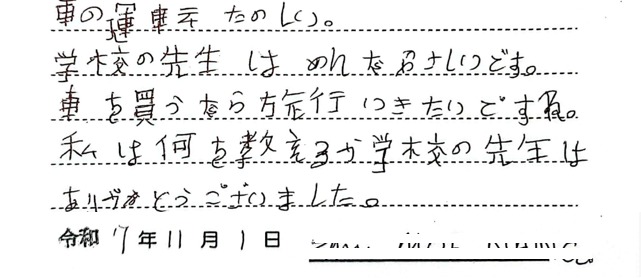 車の運転 たのしい。
学校の先生 は めんなるさいです。
車を買うなら旅行 いきたいですね。
私は何を教えるか学校の先生は
ありがとうございました。
令和 7 年 11 月 1 日